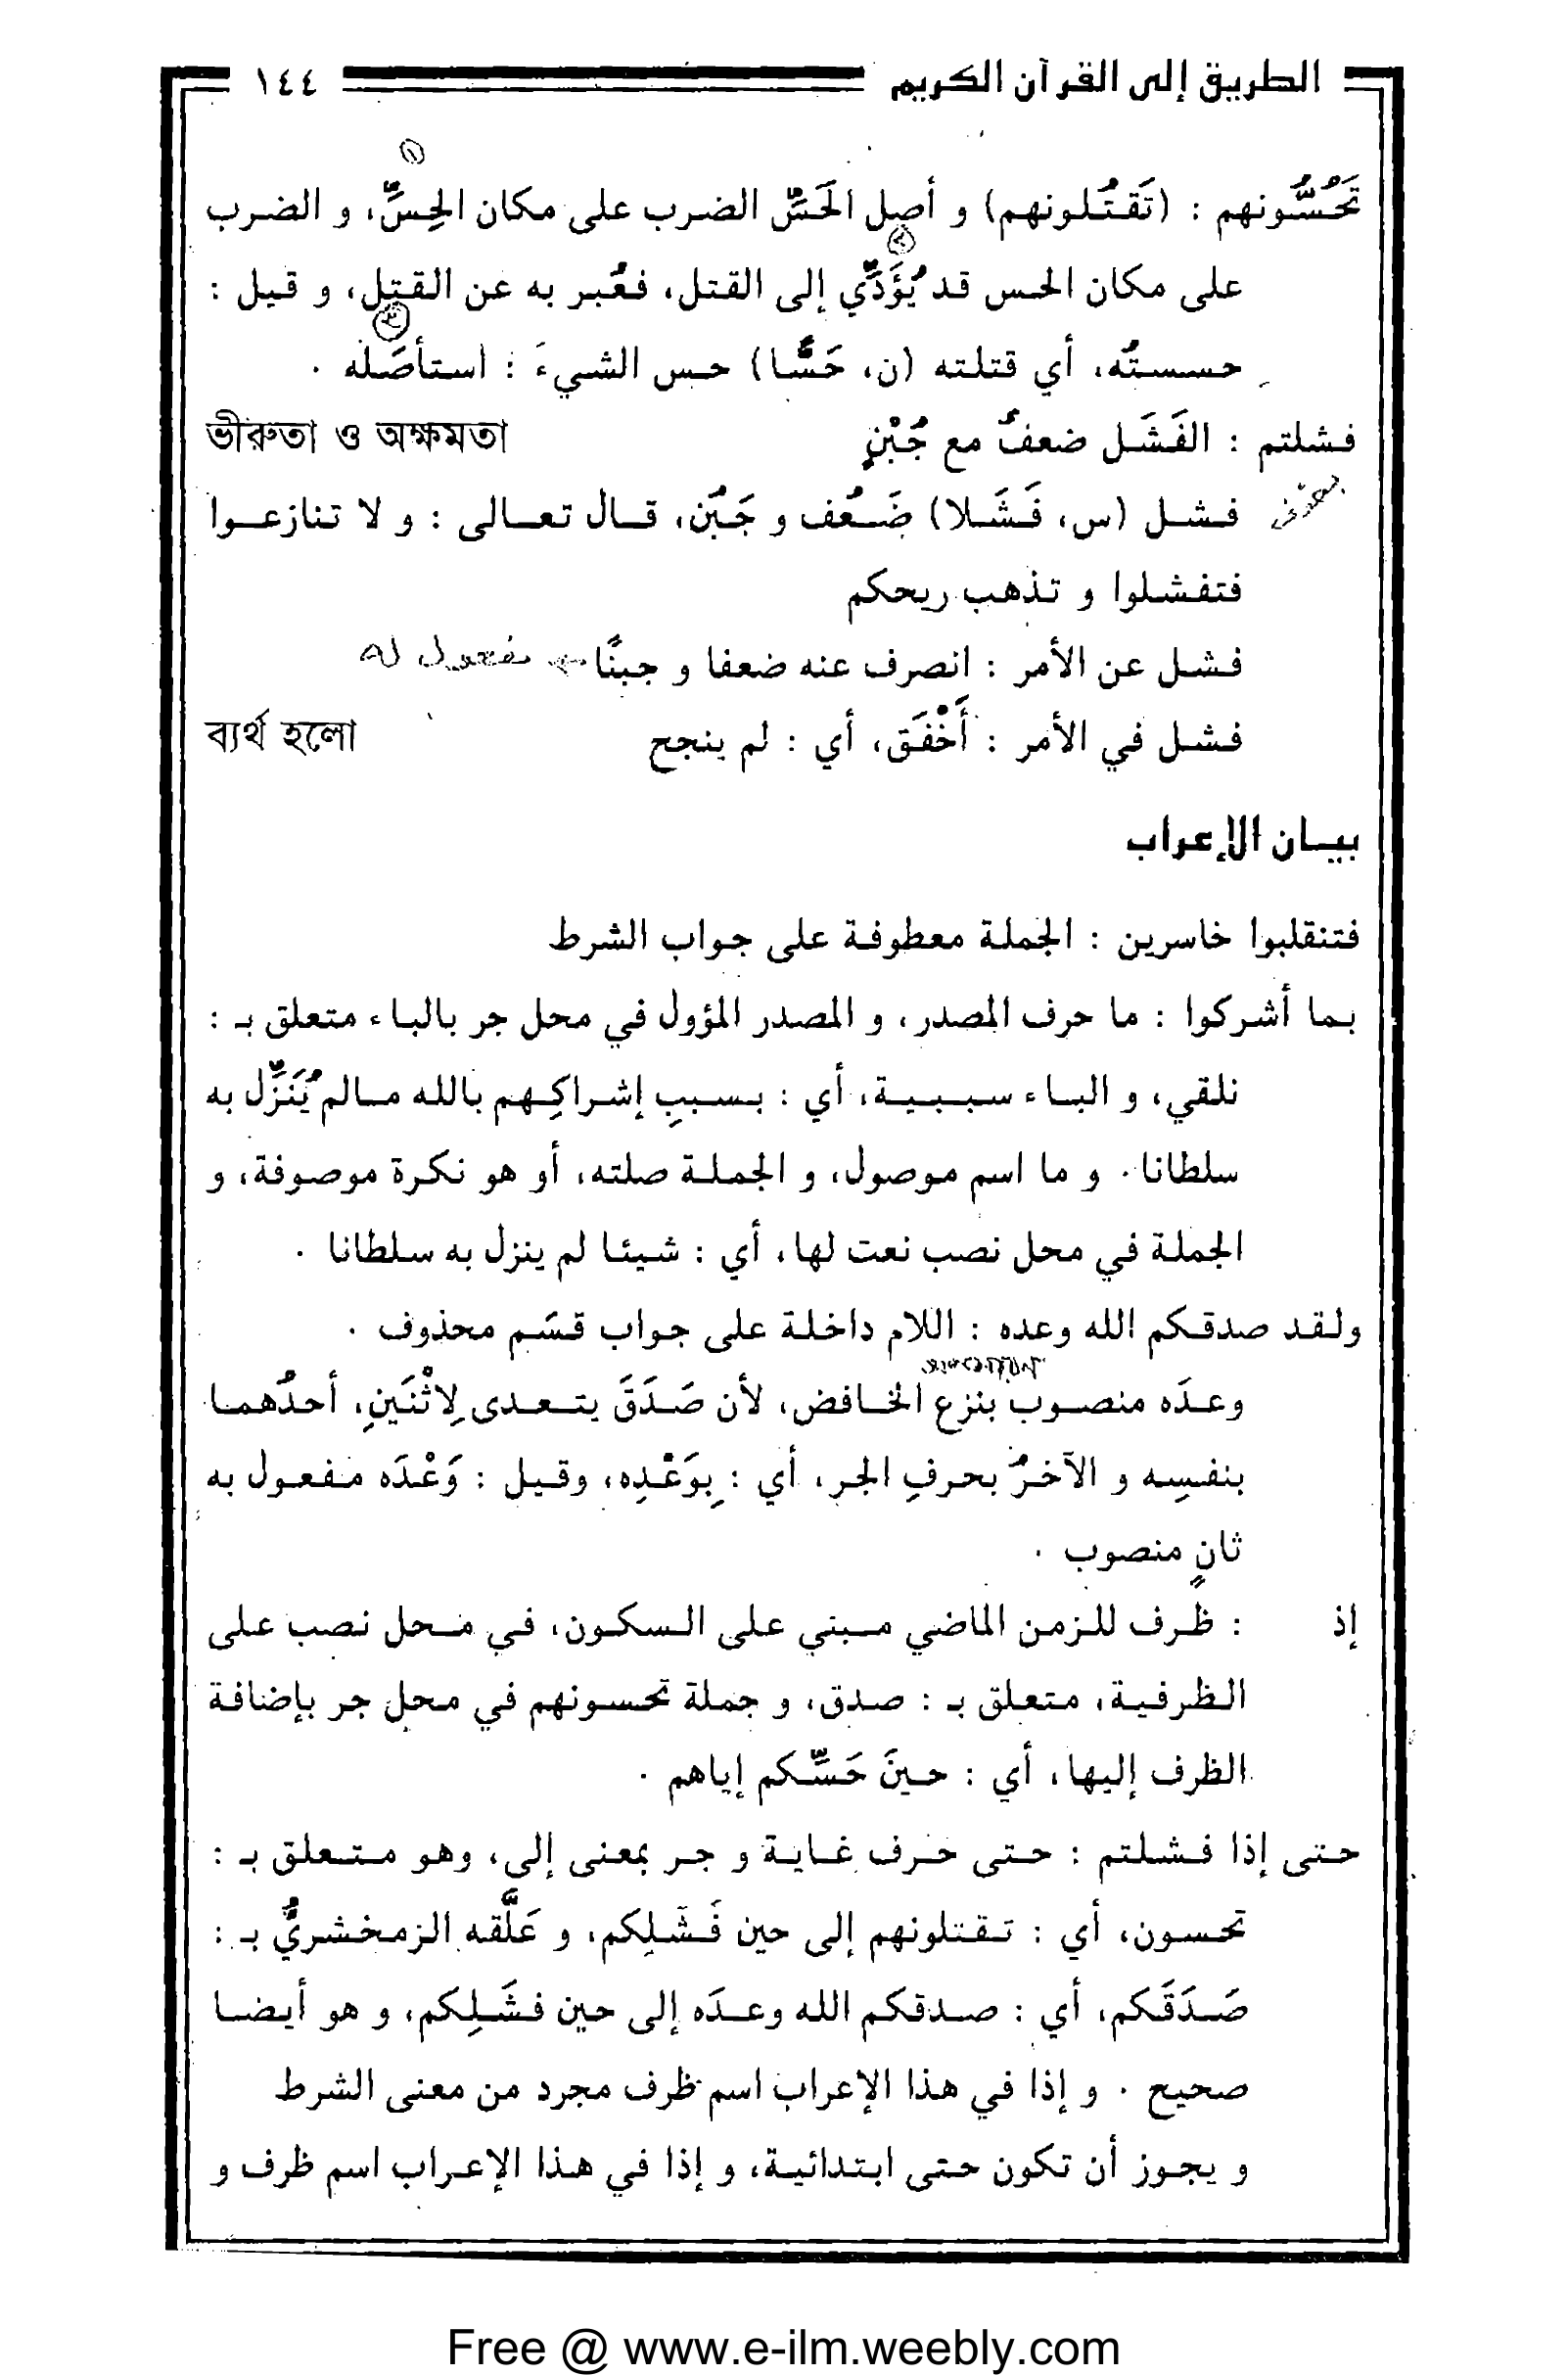 الطريق إلى القرآن الكريم ١٤٤
١
تَحُسُّونهم : (تَقتُلونهم) و أصل الحَسّ الضرب على مكان الحِسِّ، و الضرب
٢
على مكان الحس قد يُؤَدِّي إلى القتل، فعُبر به عن القتل، و قيل :
٣
حسستُه، أي قتلته (ن، حَسًّا) حس الشيءَ : استأصَله .
فشلتم : الفَشَل ضعفٌ مع جُبْنٍ ভীরুতা ও অক্ষমতা
فشل (س، فَشَلا) ضَعُف و جَبُن، قال تعالى : و لا تنازعوا
فتفشلوا و تذهب ريحكم
فشل عن الأمر : انصرف عنه ضعفا و جبنًا ← مفعول له
فشل في الأمر : أَخْفَق، أي : لم ينجح ব্যর্থ হলো
بيان الإعراب
فتنقلبوا خاسرين : الجملة معطوفة على جواب الشرط
بما أشركوا : ما حرف المصدر، و المصدر المؤول في محل جر بالباء متعلق بـ :
نلقي، و الباء سببية، أي : بسببِ إشراكِهم بالله مالم يُنَزِّل به
سلطانا . و ما اسم موصول، و الجملة صلته، أو هو نكرة موصوفة، و
الجملة في محل نصب نعت لها، أي : شيئا لم ينزل به سلطانا .
ولقد صدقكم الله وعده : اللام داخلة على جواب قسَم محذوف .
وعدَه منصوب بنزع الخافض، لأن صَدَقَ يتعدى لِاثْنَينِ، أحدُهما
بنفسِه و الآخرُ بحرفِ الجر، أي : بِوَعْدِه، وقيل : وَعْدَه مفعول به
ثانٍ منصوب .
إذ : ظرف للزمن الماضي مبني على السكون، في محل نصب على
الظرفية، متعلق بـ : صدق، و جملة تحسونهم في محل جر بإضافة
الظرف إليها، أي : حينَ حَسِّكم إياهم .
حتى إذا فشلتم : حتى حرف غاية و جر بمعنى إلى، وهو متعلق بـ :
تحسون، أي : تقتلونهم إلى حين فَشَلِكم، و عَلَّقه الزمخشريُّ بـ :
صَدَقَكم، أي : صدقكم الله وعدَه إلى حين فشَلِكم، و هو أيضا
صحيح . و إذا في هذا الإعراب اسم ظرف مجرد من معنى الشرط
و يجوز أن تكون حتى ابتدائية، و إذا في هذا الإعراب اسم ظرف و
Free @ www.e-ilm.weebly.com